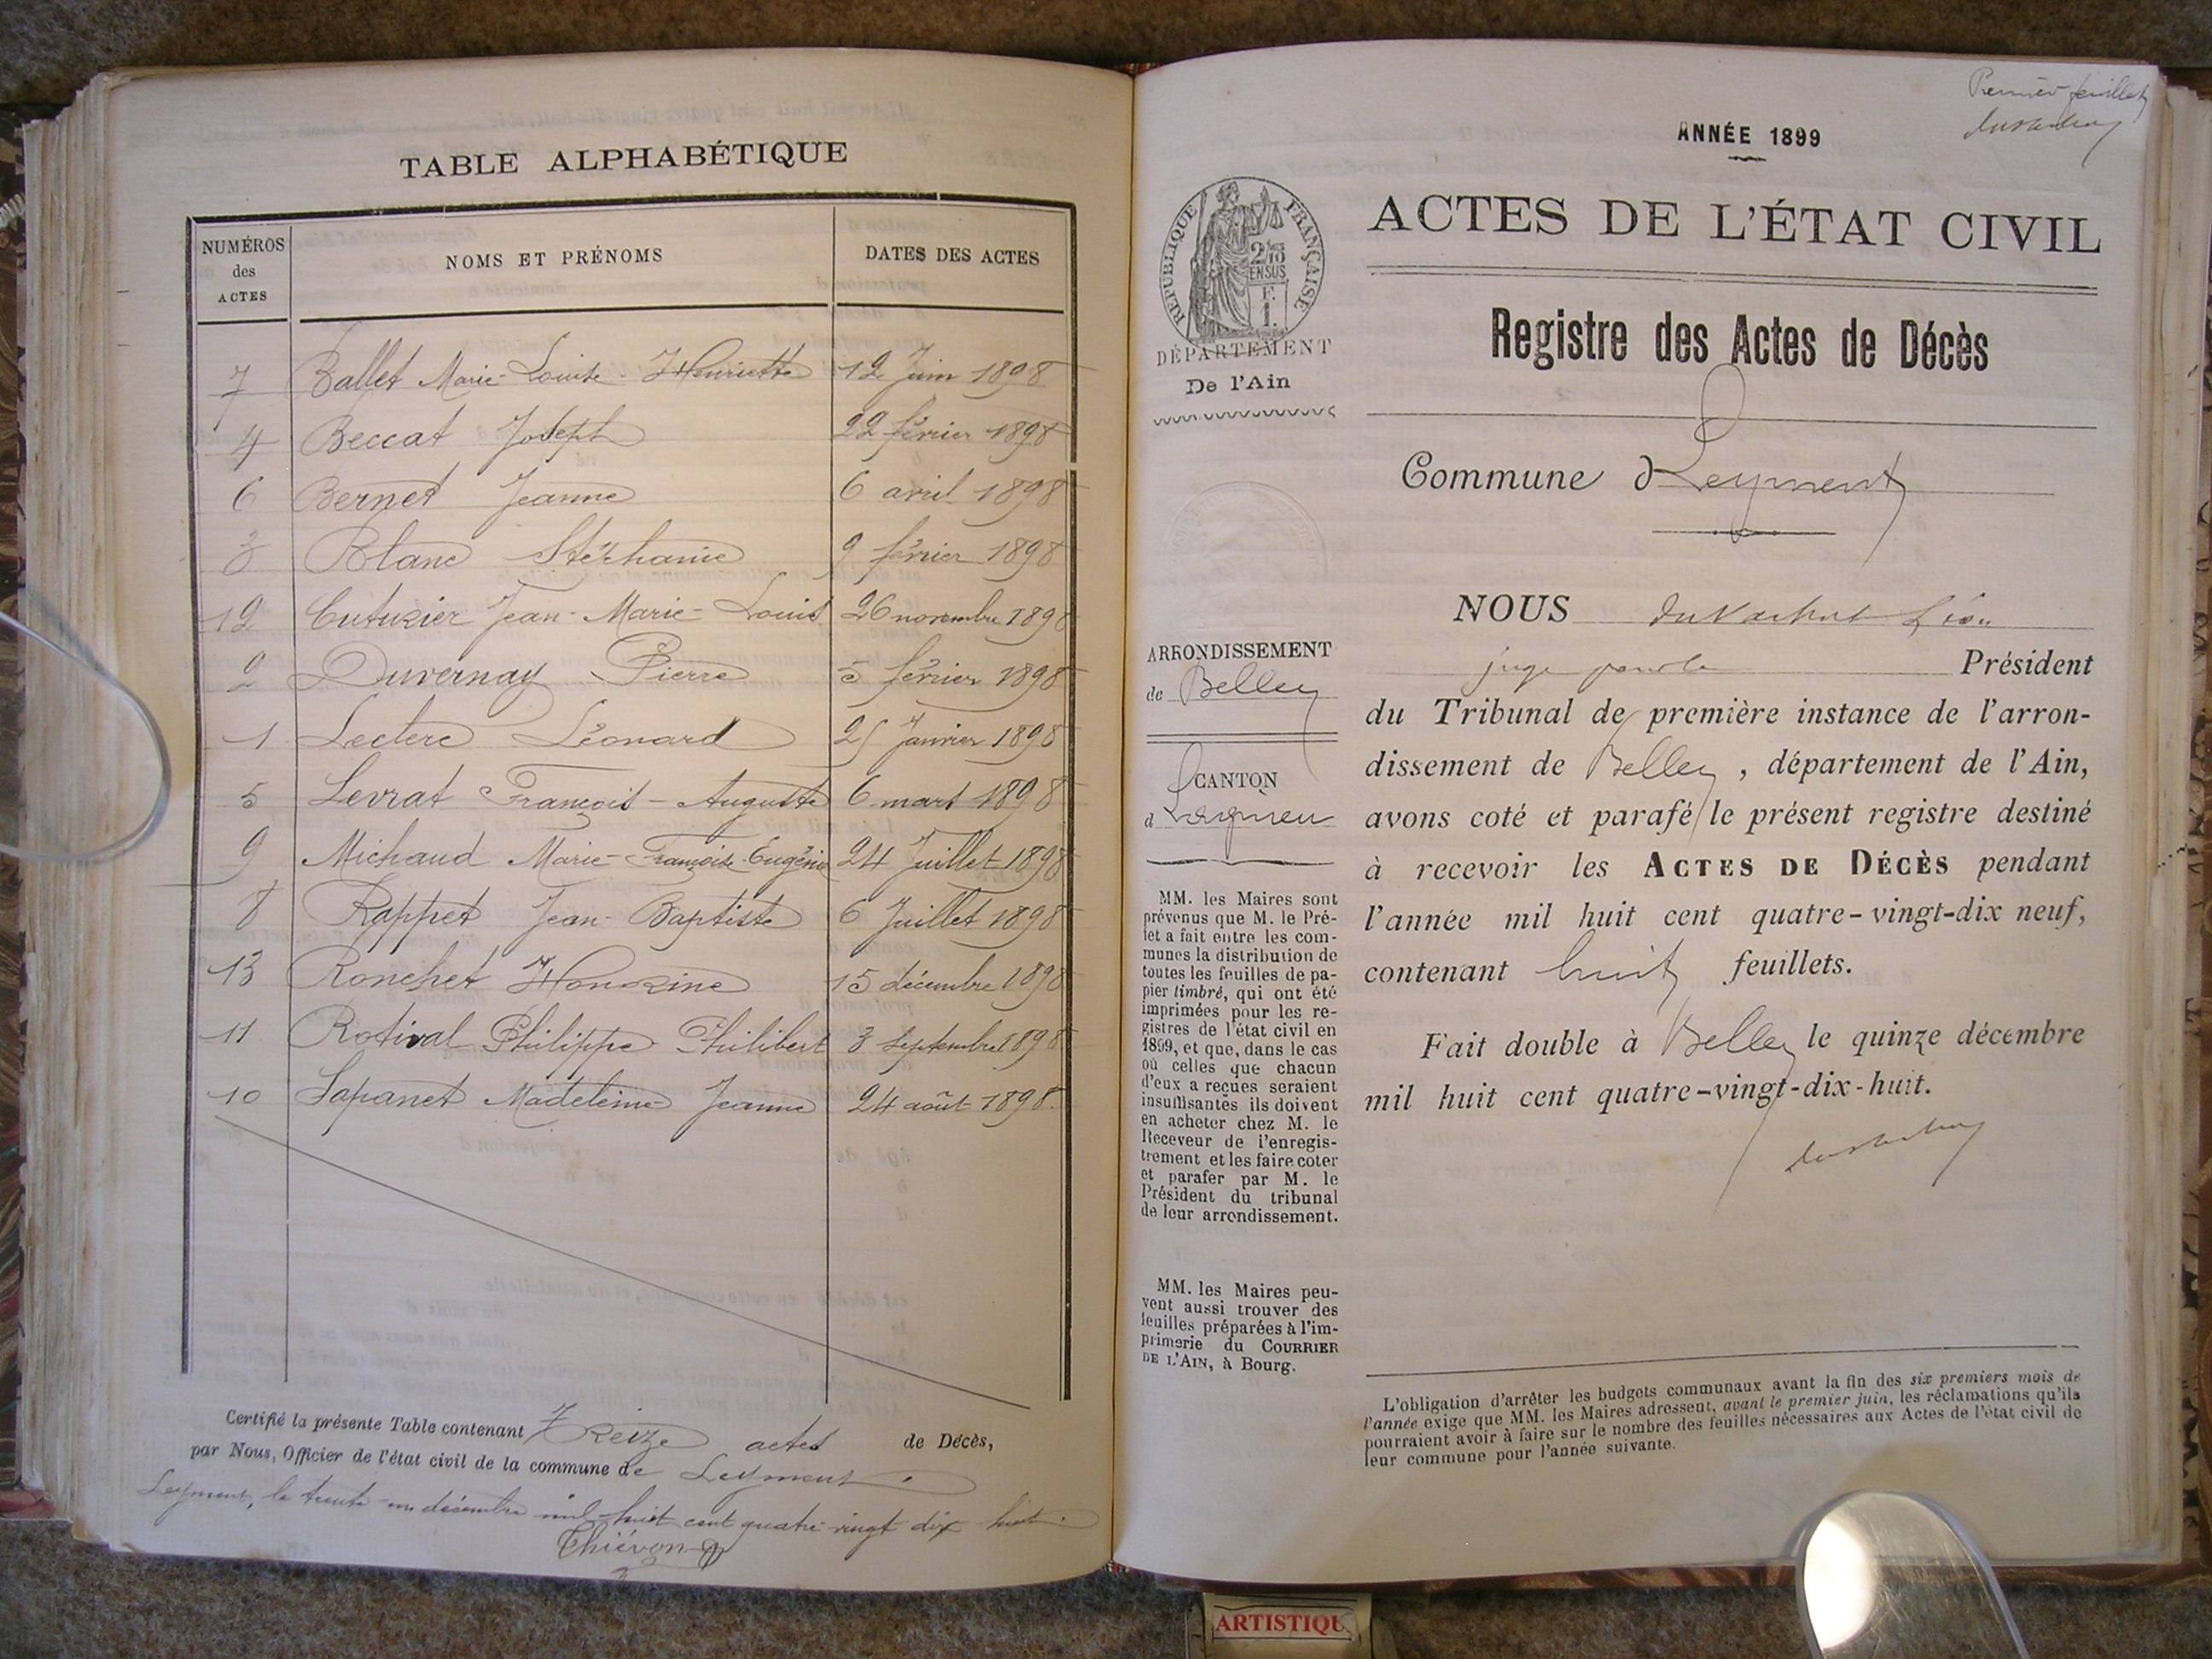 TABLE ALPHABÉTIQUE
NUMÉROS des ACTES NOMS ET PRÉNOMS DATES DES ACTES
7 Ballet Marie-Louise-Henriette 12 Juin 1898
4 Beccat Joseph 22 février 1898
6 Bernet Jeanne 6 avril 1898
3 Blanc Stéphanie 9 février 1898
12 Cutuzier Jean-Marie-Louis 26 novembre 1898
2 Duvernay Pierre 5 février 1898
1 Leclerc Léonard 25 Janvier 1898
5 Levrat François-Auguste 6 mars 1898
9 Michaud Marie-Françoise-Eugénie 24 Juillet 1898
8 Rappet Jean-Baptiste 6 Juillet 1898
13 Ronchet Honorine 15 décembre 1898
11 Rotival Philippe Philibert 3 Septembre 1898
10 Sapanet Madeleine Jeanne 24 août 1898
Certifié la présente Table contenant Treize actes de Décès,
par Nous, Officier de l'état civil de la commune de Leyment.
Leyment, le trente-un décembre mil-huit cent quatre-vingt dix-huit.
Thiévon
Premier feuillet
ANNÉE 1899
ACTES DE L'ÉTAT CIVIL
RÉPUBLIQUE FRANÇAISE
2/10 EN SUS
F. 1.
DÉPARTEMENT
De l'Ain
Registre des Actes de Décès
Commune d Leyment
ARRONDISSEMENT
de Belley
CANTON
d Lagnieu
MM. les Maires sont
prévenus que M. le Pré-
fet a fait entre les com-
munes la distribution de
toutes les feuilles de pa-
pier timbré, qui ont été
imprimées pour les re-
gistres de l'état civil en
1899, et que, dans le cas
où celles que chacun
d'eux a reçues seraient
insuffisantes ils doivent
en acheter chez M. le
Receveur de l'enregis-
trement et les faire coter
et parafer par M. le
Président du tribunal
de leur arrondissement.
MM. les Maires peu-
vent aussi trouver des
feuilles préparées à l'im-
primerie du COURRIER
DE L'AIN, à Bourg.
NOUS Léon
juge pour le Président
du Tribunal de première instance de l'arron-
dissement de Belley, département de l'Ain,
avons coté et parafé le présent registre destiné
à recevoir les ACTES DE DÉCÈS pendant
l'année mil huit cent quatre-vingt-dix neuf,
contenant huit feuillets.
Fait double à Belley le quinze décembre
mil huit cent quatre-vingt-dix-huit.
L'obligation d'arrêter les budgets communaux avant la fin des six premiers mois de
l'année exige que MM. les Maires adressent, avant le premier juin, les réclamations qu'ils
pourraient avoir à faire sur le nombre des feuilles nécessaires aux Actes de l'état civil de
leur commune pour l'année suivante.
ARTISTIQU